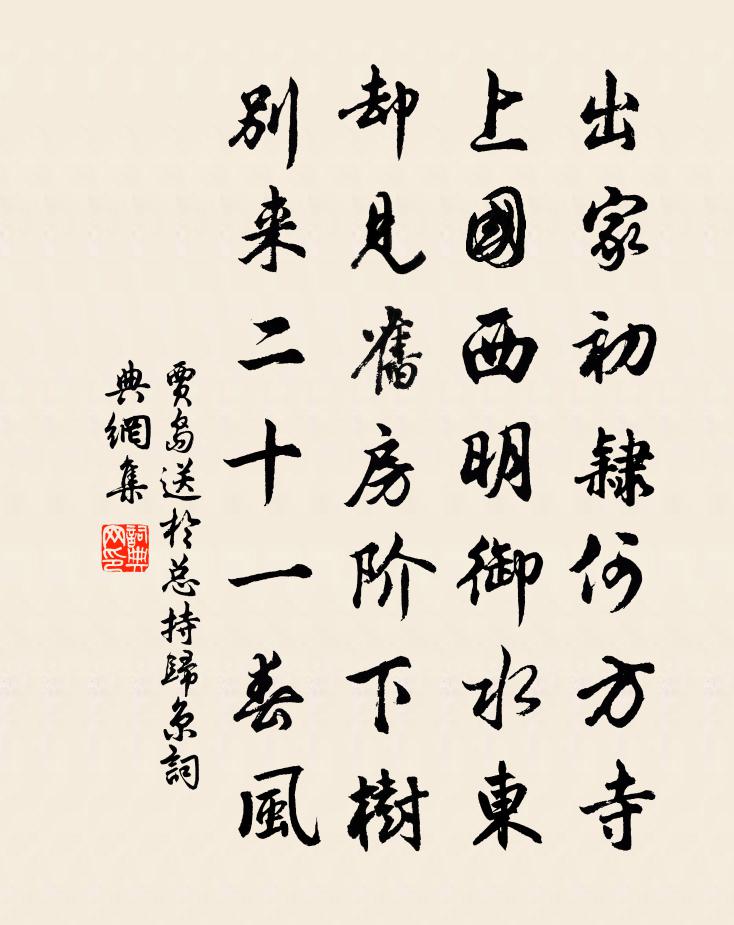 出家初隸何方寺
上國西明御水東
却見舊房阶下樹
别来二十一春風
賈島送於总持歸京詞
典網集
詞典网印